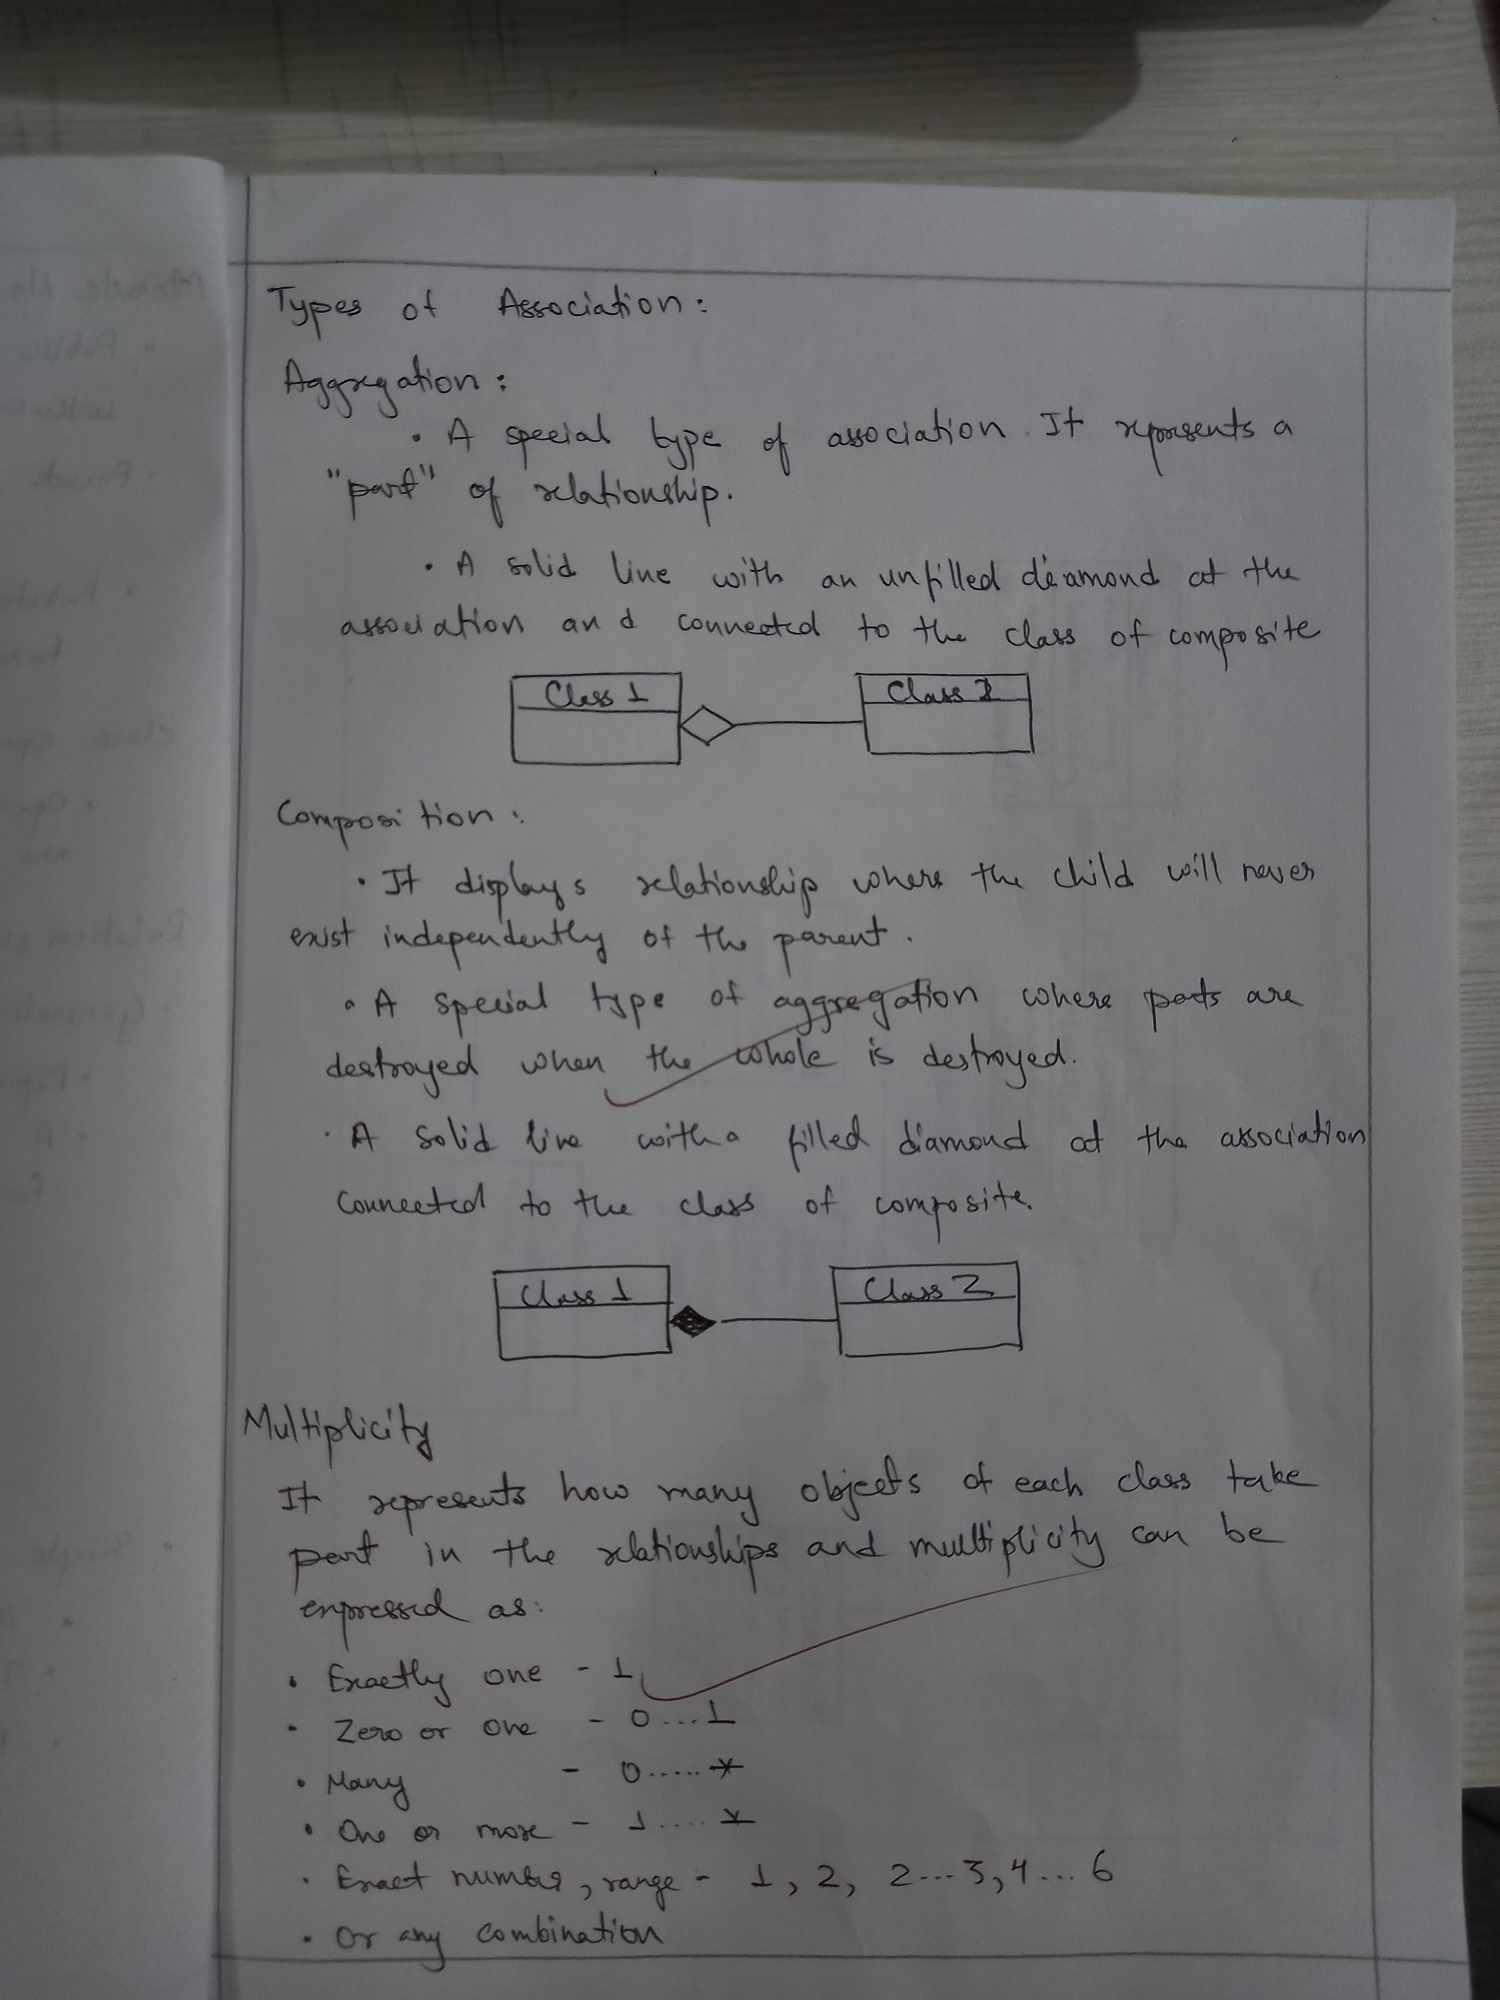 Types of Association:
Aggregation:
• A special type of association. It represents a
"part" of relationship.
• A solid line with an unfilled diamond at the
association and connected to the class of composite
Class 1 Class 2
Composition:
• It displays relationship where the child will never
exist independently of the parent.
• A special type of aggregation where parts are
destroyed when the whole is destroyed.
• A solid line with a filled diamond at the association
connected to the class of composite.
Class 1 Class 2
Multiplicity
It represents how many objects of each class take
part in the relationships and multiplicity can be
expressed as:
• Exactly one - 1
• Zero or one - 0...1
• Many - 0.....*
• One or more - 1....*
• Exact number, range - 1, 2, 2...3, 4...6
• Or any combination